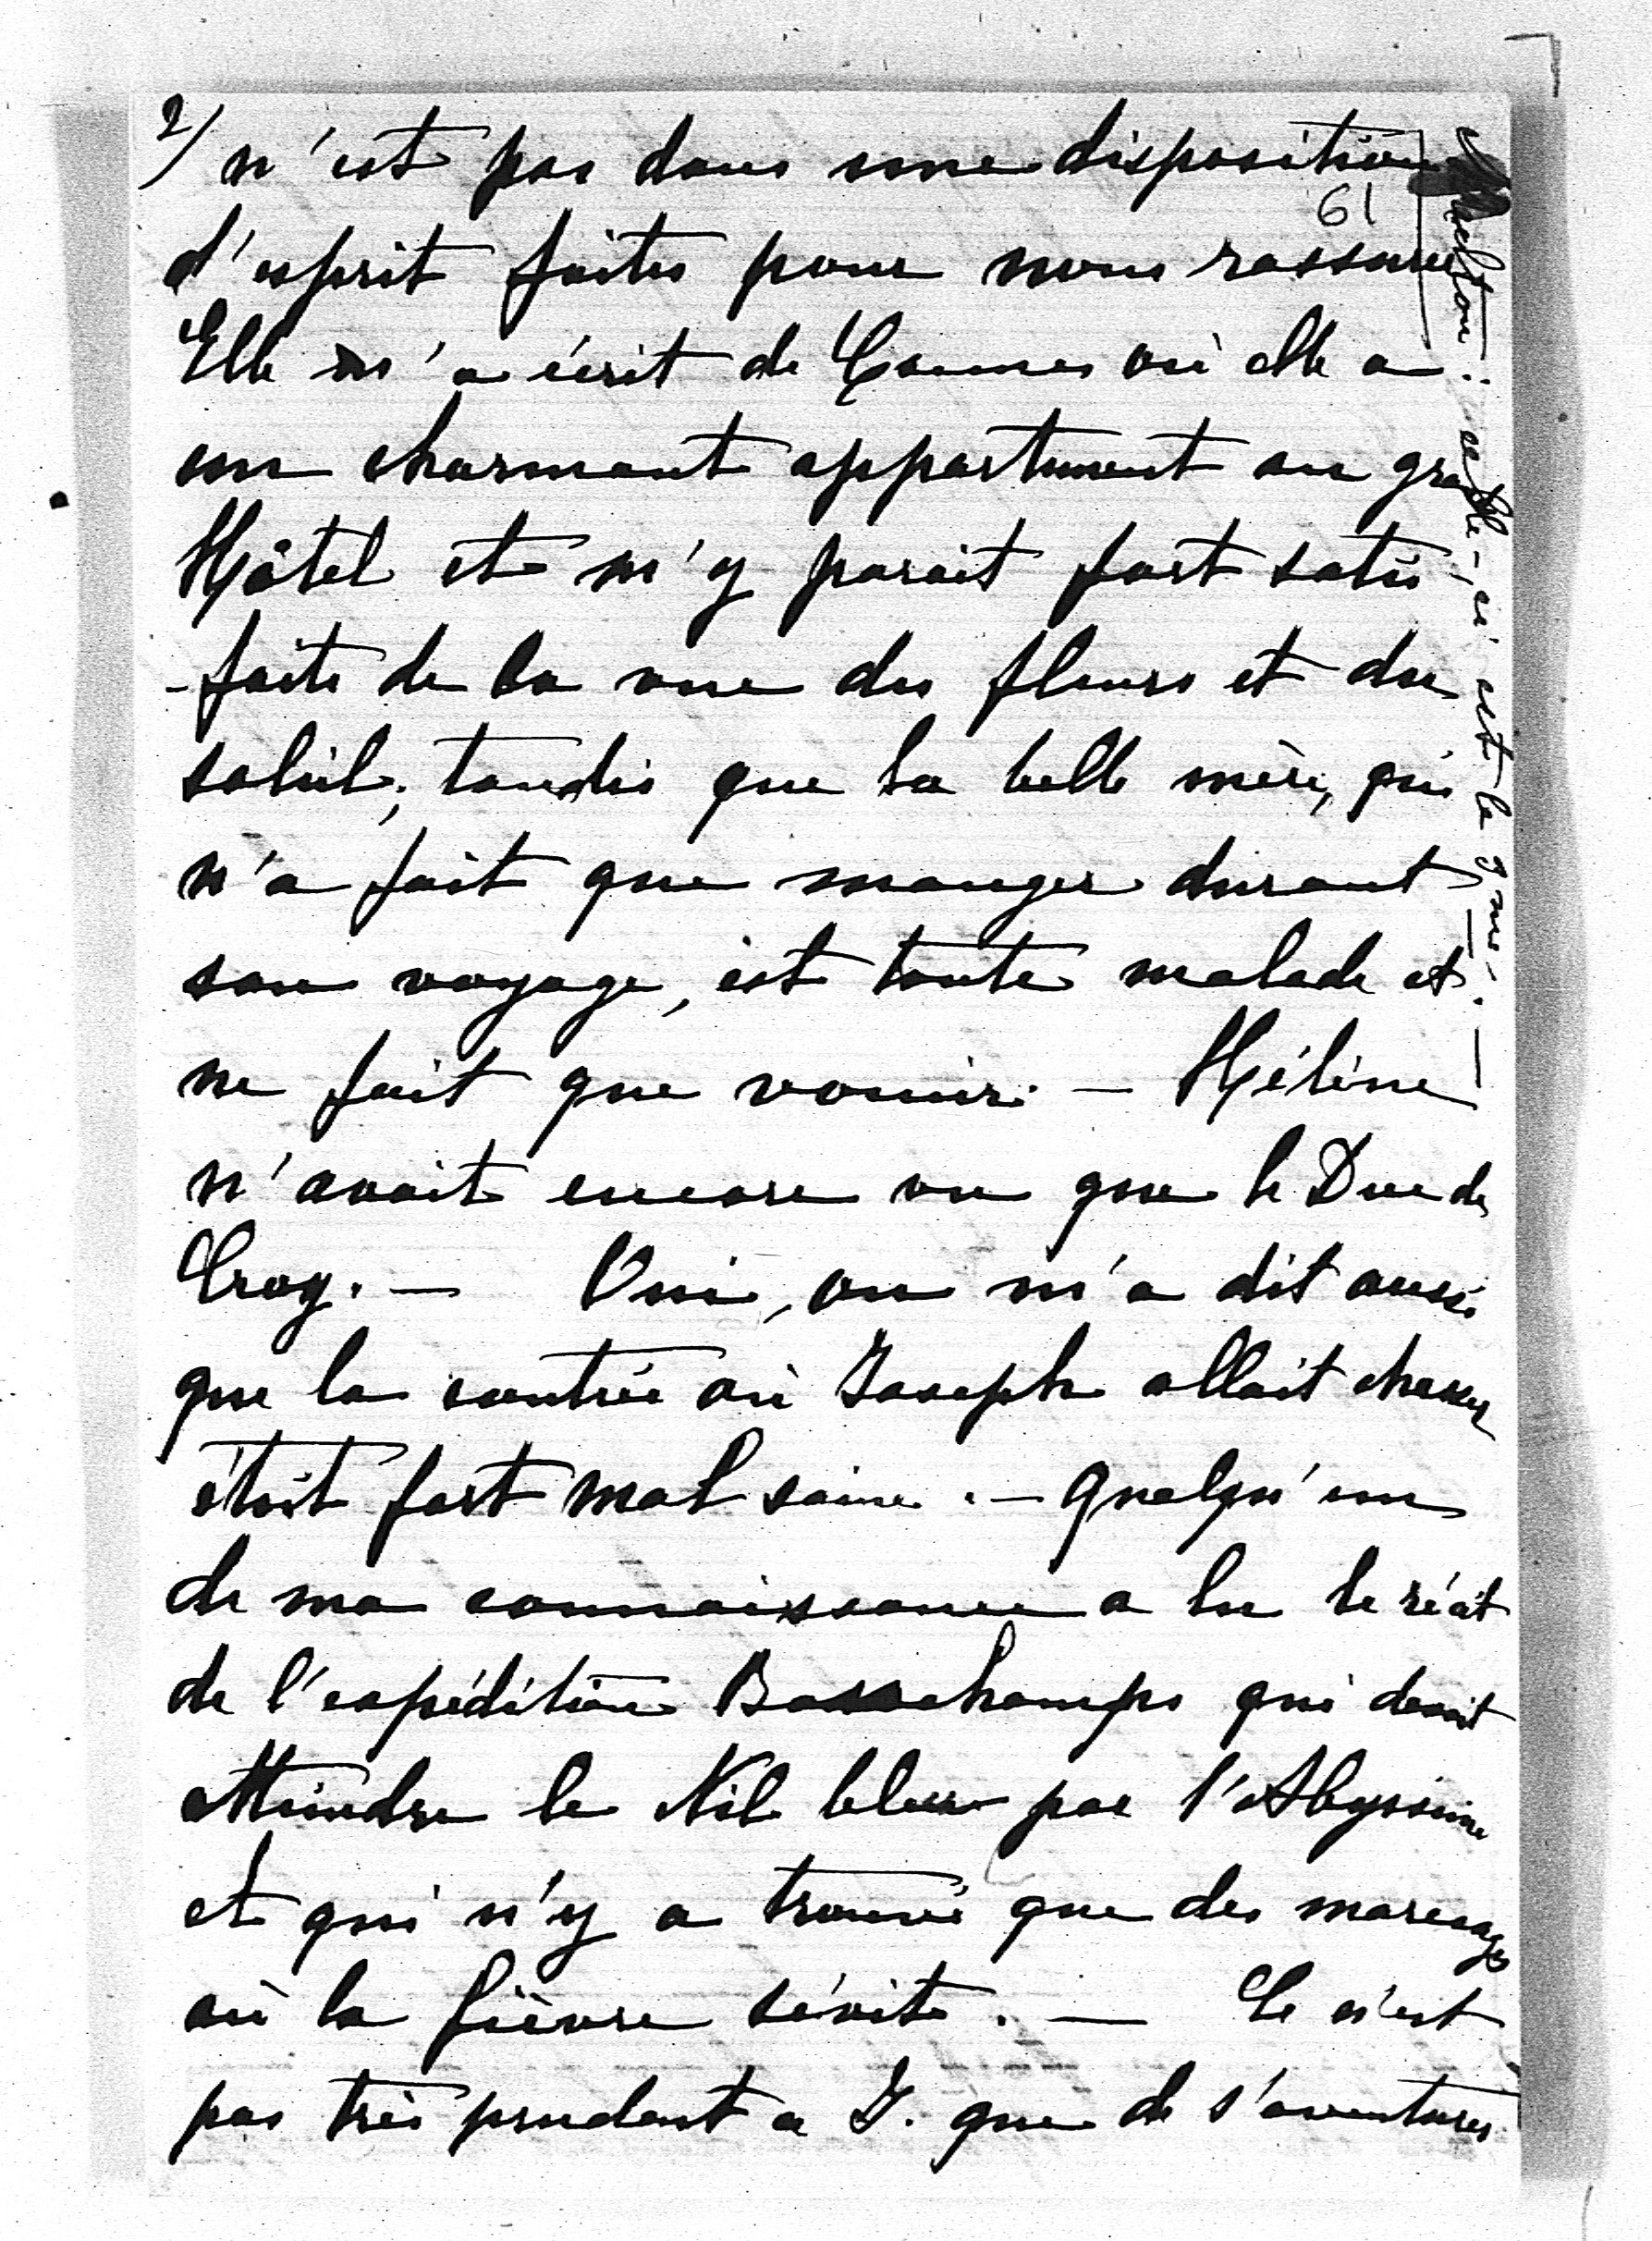 2/ n'est pas dans une disposition
61
d'esprit faites pour nous rassurer
Elle m'a écrit de Cannes où elle a
un charmant appartement au grand
Hôtel et m'y parait fort satis
-faite de la vue des fleurs et du
soleil; tandis que la belle mère, qui
n'a fait que manger durant
son voyage, est toute malade et
ne fait que vomir. — Hélène
n'avait encore vu que le Duc de
Croy. — Oui, on m'a dit aussi
que la contrée où Joseph allait chasser
était fort mal saine. — Quelqu'un
de ma connaissance a lu le récit
de l'expédition Bonchamps qui devait
atteindre le Nil bleu par l'Abyssinie
et qui n'y a trouvé que des marécages
où la fièvre sévit. — Ce n'est
pas très prudent a J. que de s'aventurer
celle-ci est la 3me. —